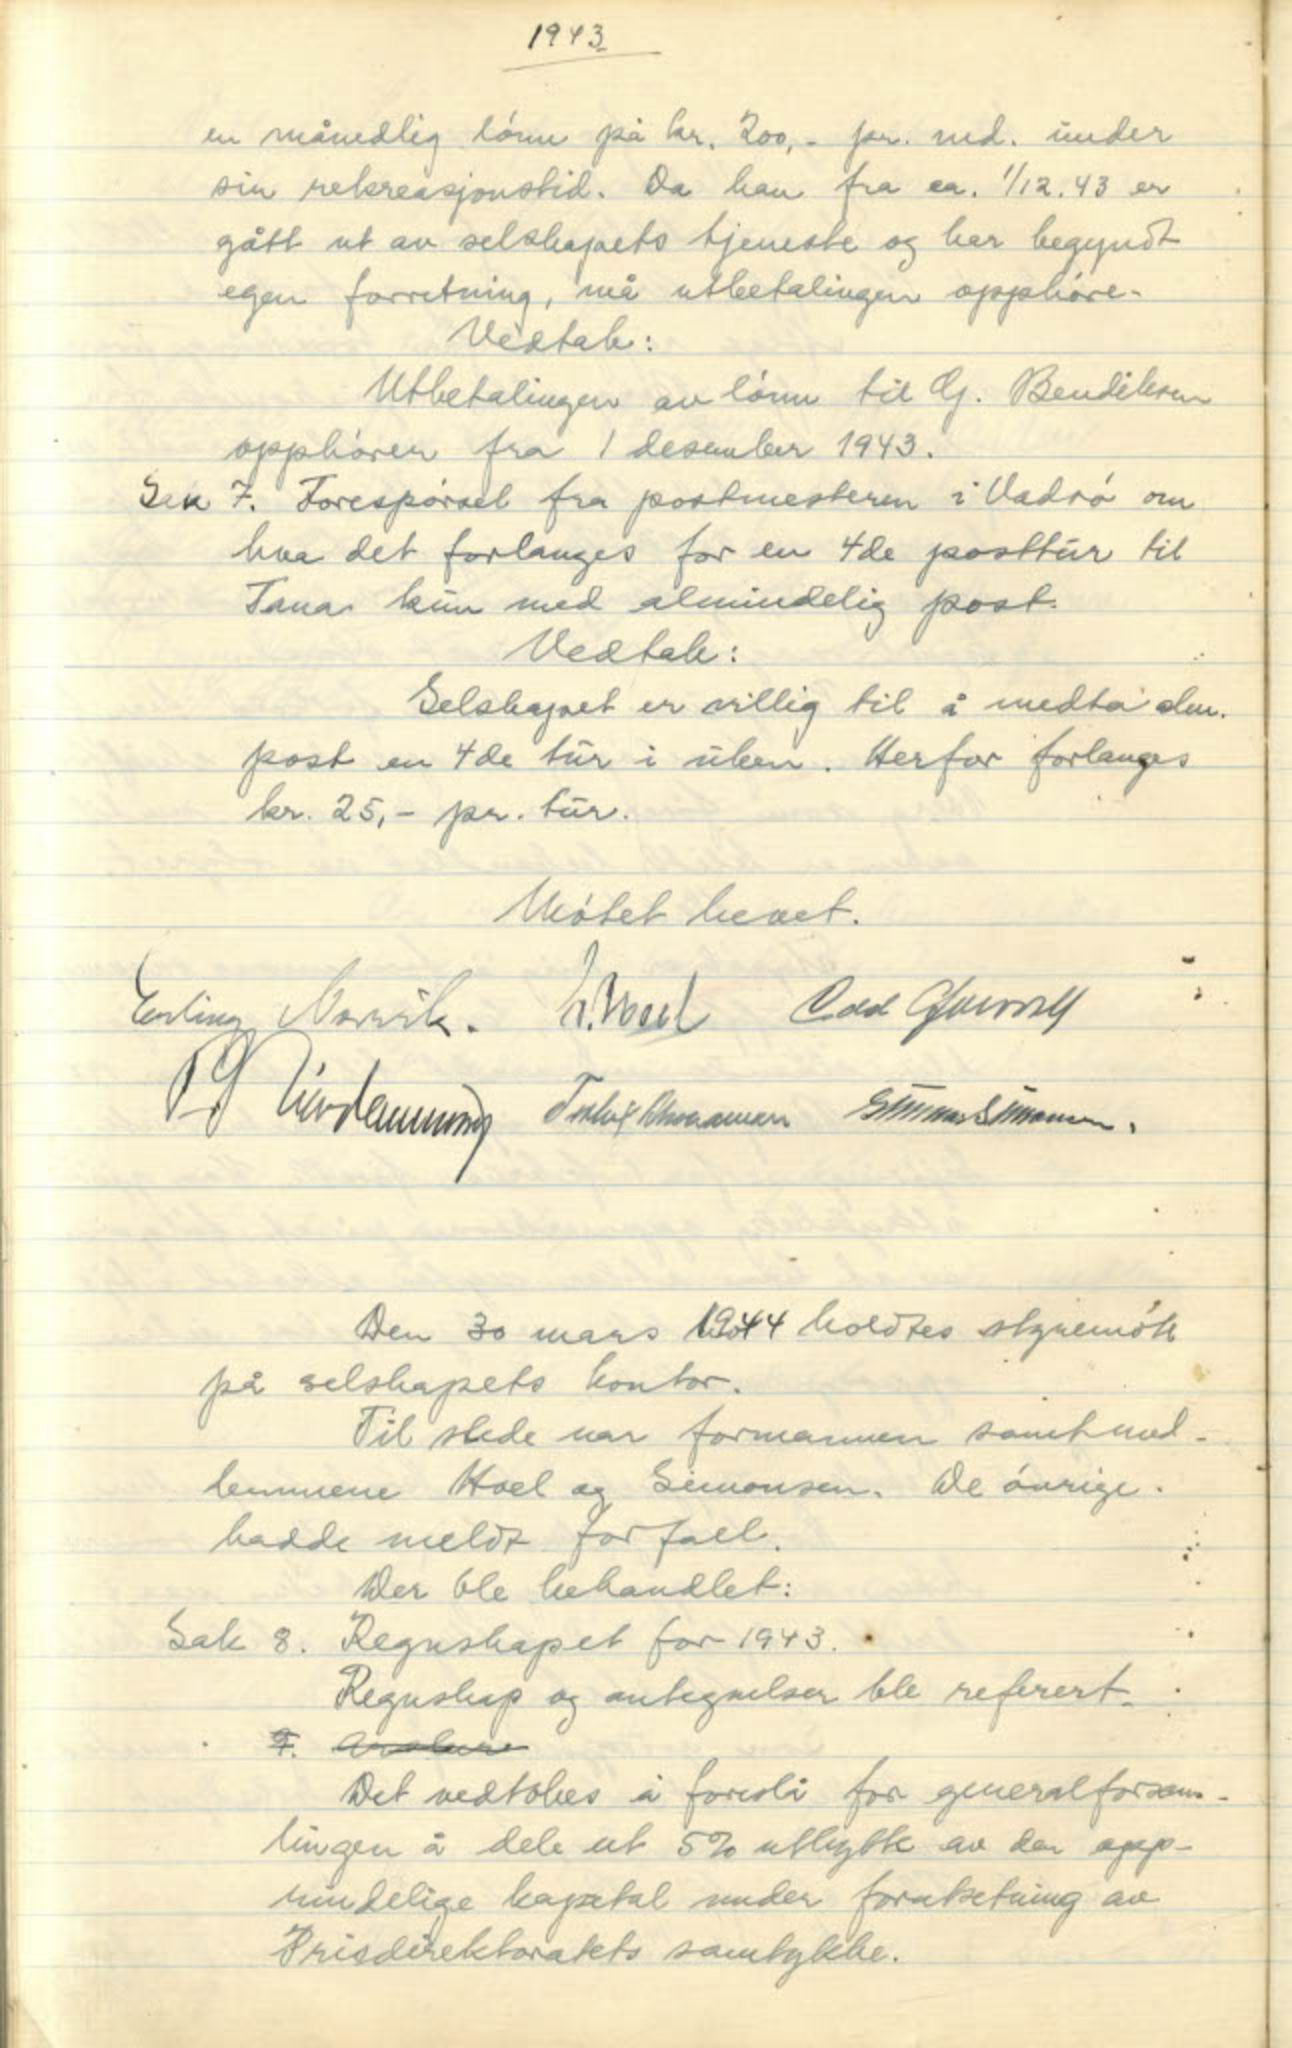 1943
en månedlig lónn på kr. 200,- pr. md. under
sin rekreasjonstid. Da han fra ca. 1/12.43 er
gått ut av selskapets tjeneste og har begyndt
egen forretning, må utbetalingen opphóre.
Vedtak:
Utbetalingen av lónn til Gj. Bendiksen
opphórer fra 1 desember 1943.
Sak 7. Forespórsel fra postmesteren i Vadsó om
hva det forlanges for en 4de posttur til
Tana kun med almindelig post.
Vedtak:
Selskapet er villig til å medta alm.
post en 4de tur i uken. Herfor forlanges
kr. 25,- pr. tur.
Mótet hevet.
Erling Norvik. Hoel Odd
Simonsen.
Den 30 mars 1944 holdtes styremóte
på selskapets kontor.
Til stede var formannen samt med-
lemmene Hoel og Simonsen. De óvrige
hadde meldt forfall.
Der ble behandlet:
Sak 8. Regnskapet for 1943.
Regnskap og antegnelser ble referert.
7.
Det vedtokes å foreslå for generalforsam-
lingen å dele ut 5% utbytte av den opp-
rindelige kapital under forutsetning av
Prisdirektoratets samtykke.